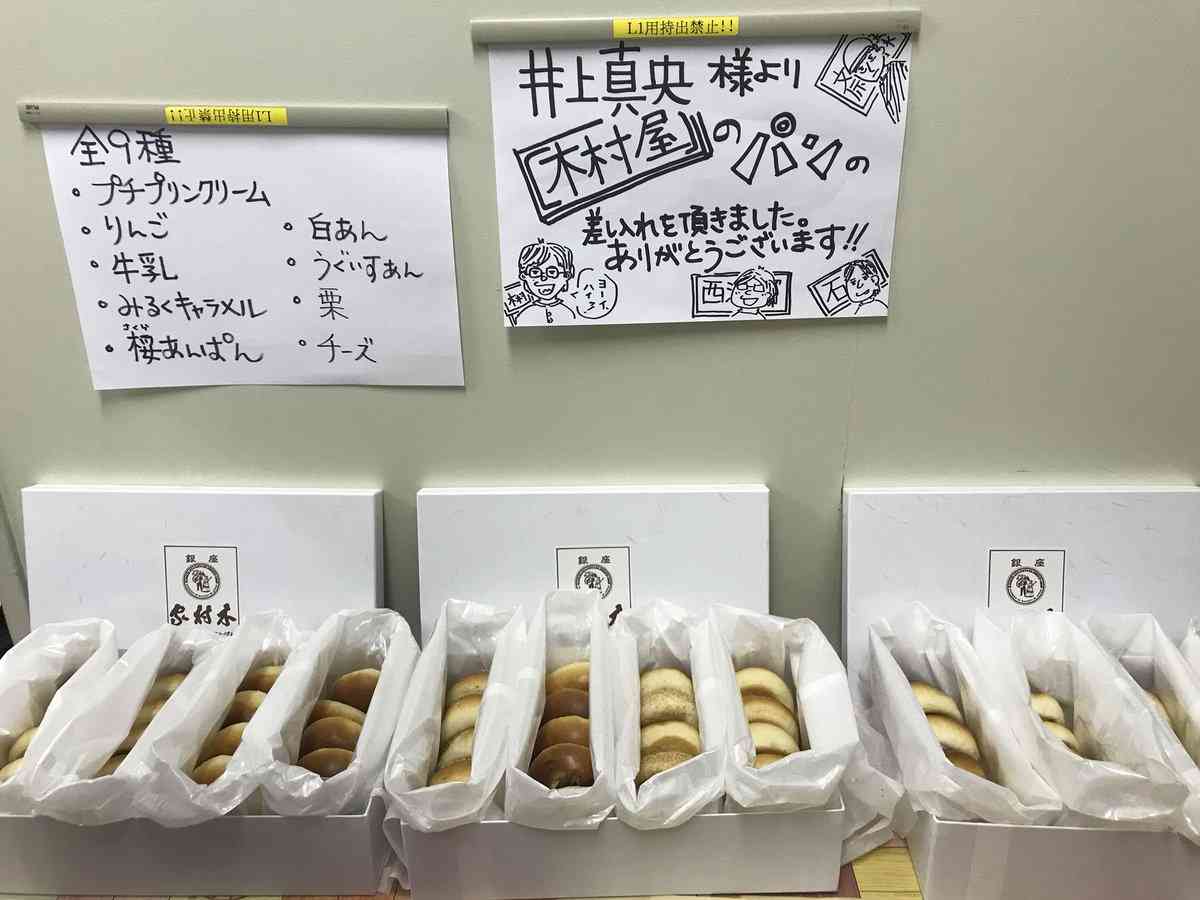 L1用持出禁止!!
全9種
・プチプリンクリーム
・りんご
・牛乳
・みるくキャラメル
さくら
・桜あんぱん
・白あん
・うぐいすあん
・栗
・チーズ
L1用持出禁止!!
井上真央様より
『木村屋』のパンの
差し入れを頂きました。
ありがとうございます!!
ヨーイ、
ハイッ
西
石
銀座
家村木
銀座
銀座